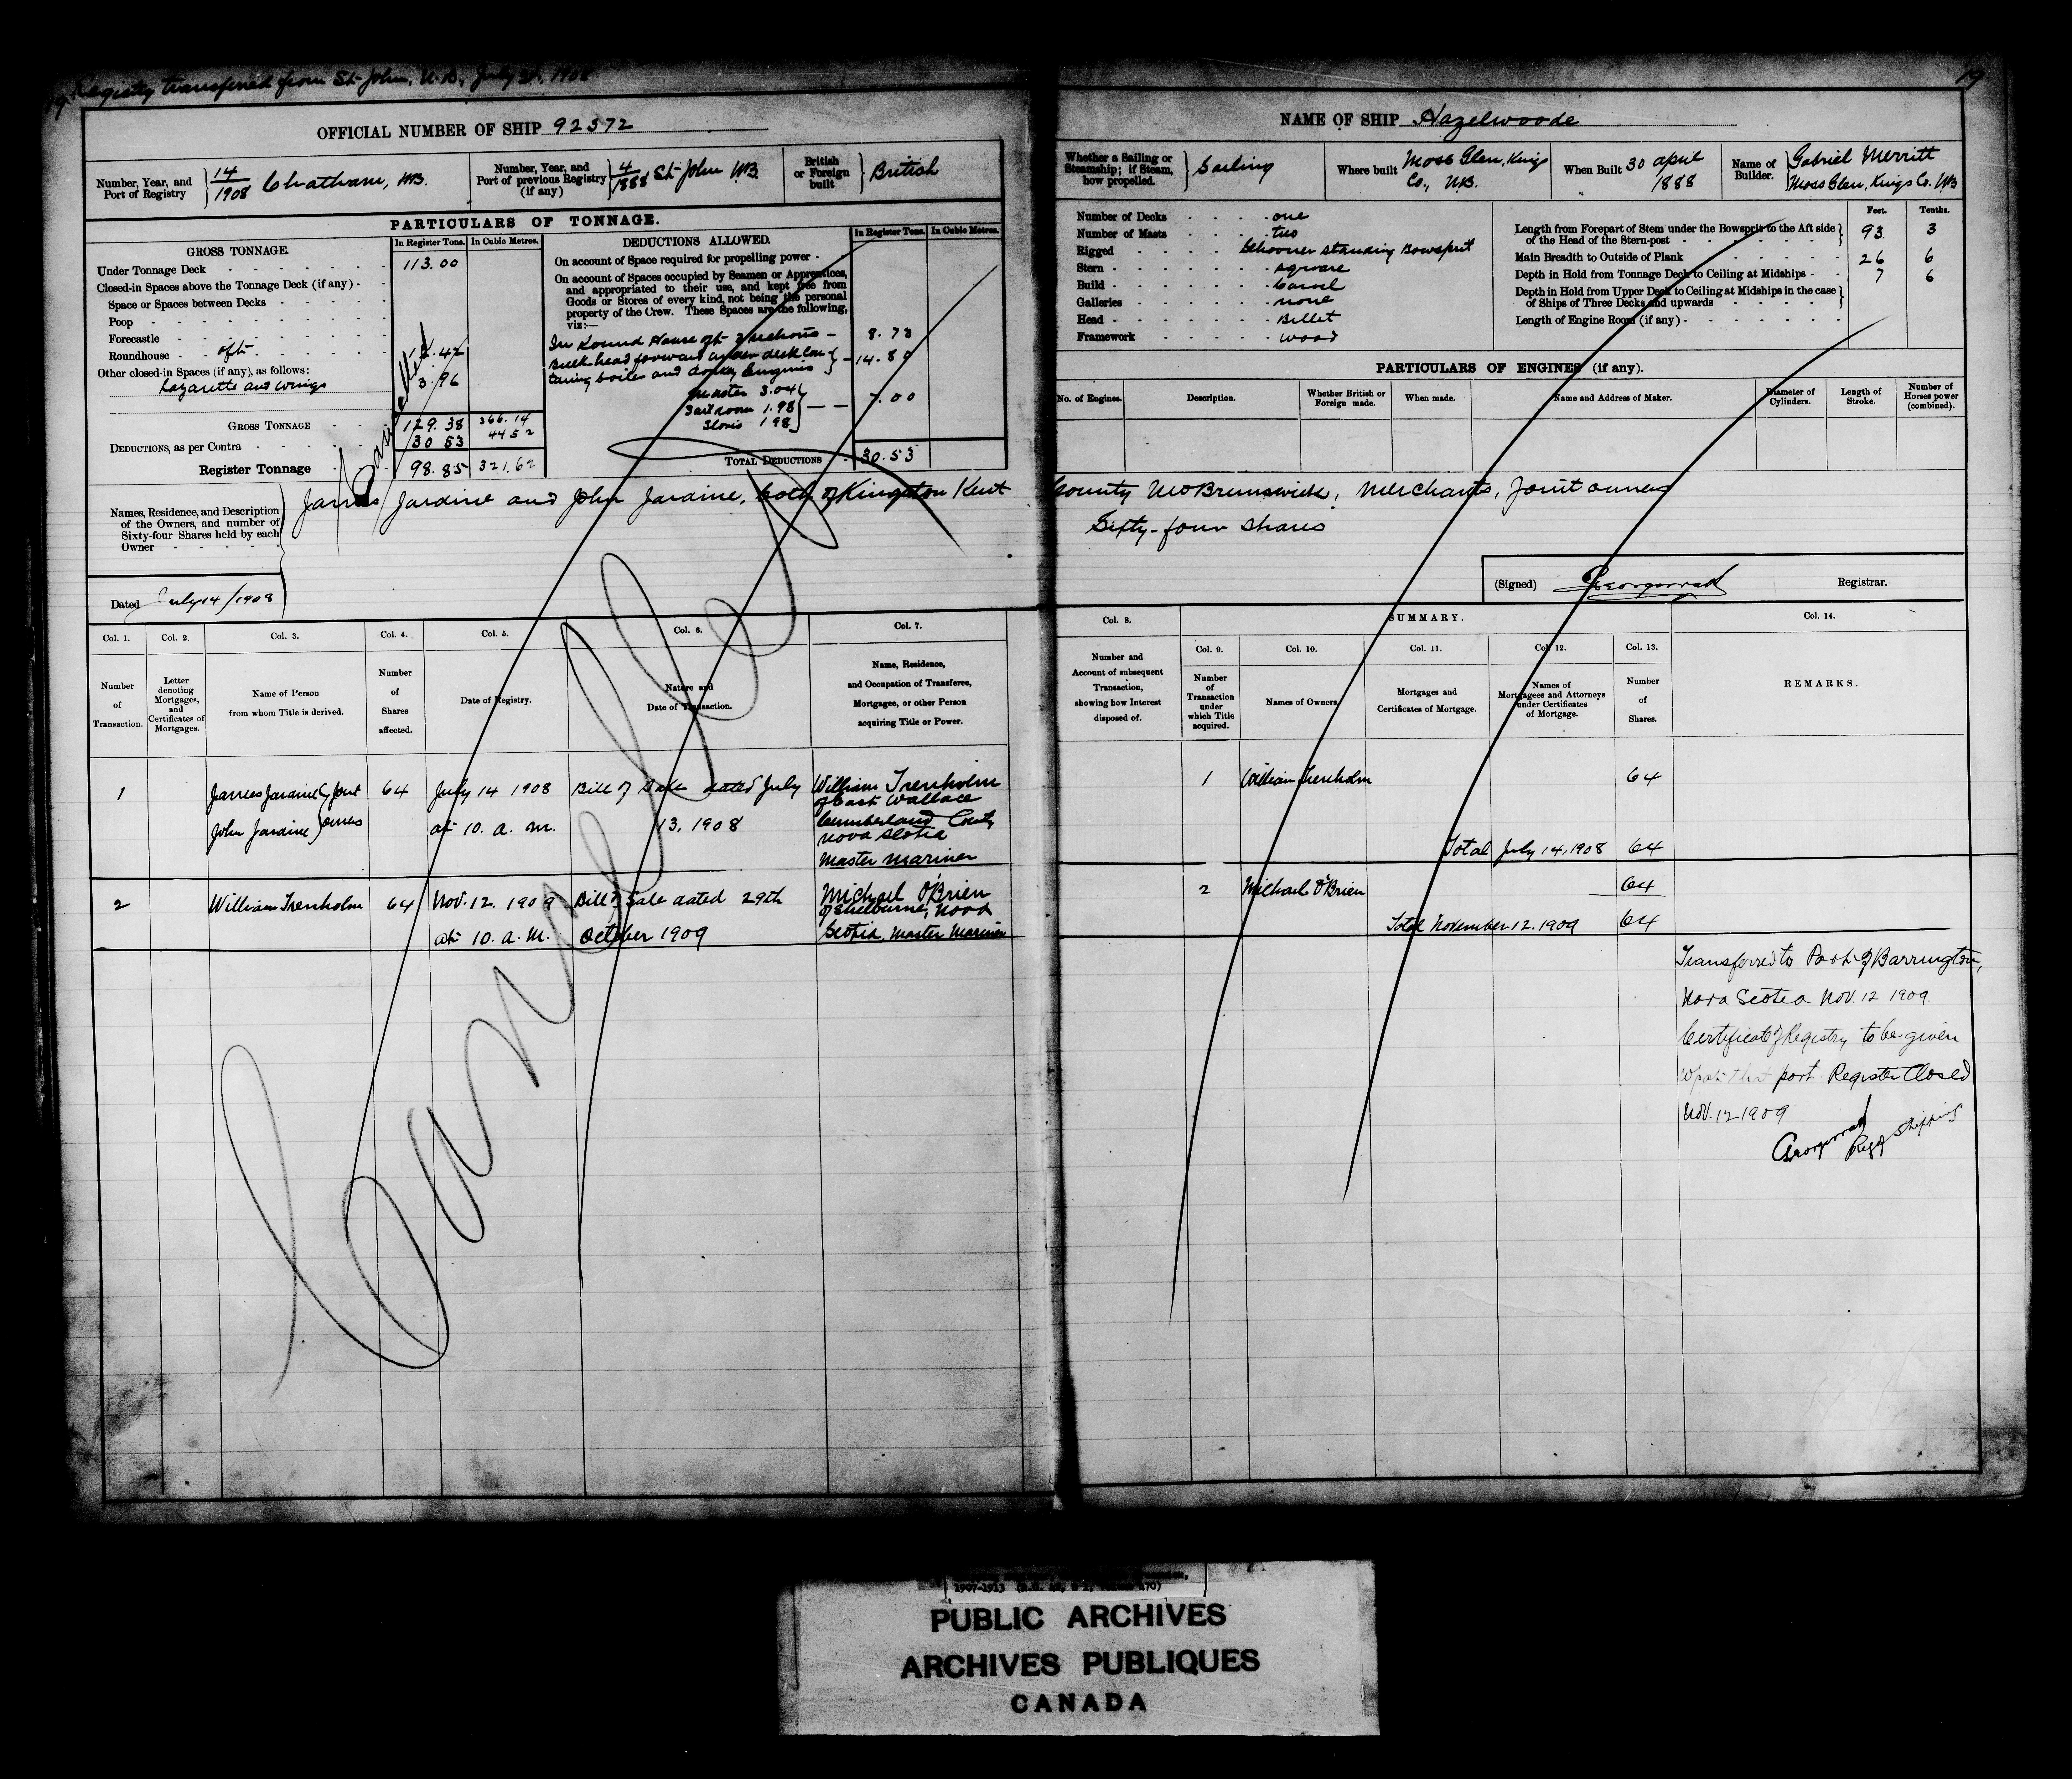 Registry transferred from St. John, N.B., July 1908
19
19
OFFICIAL NUMBER OF SHIP 92572
Number, Year, and Port of Registry 14/1908 Chatham, NB.
Number, Year, and Port of previous Registry (if any) 4/1888 St. John NB
British or Foreign built British
PARTICULARS OF TONNAGE.
GROSS TONNAGE.
In Register Tons. In Cubic Metres.
Under Tonnage Deck 113.00
Closed-in Spaces above the Tonnage Deck (if any)
Space or Spaces between Decks
Poop
Forecastle
Roundhouse aft 12.42
Other closed-in Spaces (if any), as follows:
Lazarette and wings 3.96
GROSS TONNAGE 129.38 366.14
DEDUCTIONS, as per Contra 30 53 44 52
Register Tonnage 98.85 321.62
DEDUCTIONS ALLOWED.
In Register Tons. In Cubic Metres.
On account of Space required for propelling power
On account of Spaces occupied by Seamen or Apprentices,
and appropriated to their use, and kept free from
Goods or Stores of every kind, not being the personal
property of the Crew. These Spaces are the following,
viz:—
In Round House aft 8.73
Bulk head forward under deck con
taining boiler and donkey Engines 14.80
Master 3.04
Sail room 1.98 7.00
Stores 1 98
TOTAL DEDUCTIONS 30.53
Names, Residence, and Description
of the Owners, and number of
Sixty-four Shares held by each
Owner
James Jardine and John Jardine, both of Kingston Kent
County New Brunswick, Merchants, Joint owners
Sixty-four shares
Dated July 14/1908
Cancelled
Cancelled
NAME OF SHIP Hazelwoode
Whether a Sailing or Steamship; if Steam, how propelled. Sailing
Where built Moss Glen, Kings Co., N.B.
When Built 30 april 1888
Name of Builder. Gabriel Merritt
Moss Glen, Kings Co. NB
Number of Decks one
Number of Masts two
Rigged Schooner standing Bowsprit
Stern square
Build Carvel
Galleries none
Head Billet
Framework wood
Feet. Tenths.
Length from Forepart of Stem under the Bowsprit to the Aft side
of the Head of the Stern-post 93. 3
Main Breadth to Outside of Plank 26 6
Depth in Hold from Tonnage Deck to Ceiling at Midships 7 6
Depth in Hold from Upper Deck to Ceiling at Midships in the case
of Ships of Three Decks and upwards
Length of Engine Room (if any)
PARTICULARS OF ENGINES (if any).
No. of Engines. Description. Whether British or Foreign made. When made. Name and Address of Maker. Diameter of Cylinders. Length of Stroke. Number of Horses power (combined).
(Signed) Registrar.
Col. 1. Col. 2. Col. 3. Col. 4. Col. 5. Col. 6. Col. 7.
Number of Transaction.
Letter denoting Mortgages, and Certificates of Mortgages.
Name of Person from whom Title is derived.
Number of Shares affected.
Date of Registry.
Nature and Date of Transaction.
Name, Residence, and Occupation of Transferee, Mortgagee, or other Person acquiring Title or Power.
Col. 8. SUMMARY. Col. 14.
Col. 9. Col. 10. Col. 11. Col. 12. Col. 13.
Number and Account of subsequent Transaction, showing how Interest disposed of.
Number of Transaction under which Title acquired.
Names of Owners.
Mortgages and Certificates of Mortgage.
Names of Mortgagees and Attorneys under Certificates of Mortgage.
Number of Shares.
REMARKS.
1 James Jardine Joint 64 July 14 1908 Bill of Sale dated July William Trenholm
of East Wallace
John Jardine owners at 10. a. m. 13. 1908 Cumberland County
Nova Scotia
Master Mariner
1 William Trenholm 64
Total July 14, 1908 64
2 William Trenholm 64 Nov. 12. 1909 Bill of Sale dated 29th Michael O'Brien
of Shelburne, Nova
at 10. a. m. October 1909 Scotia, Master Mariner
2 Michael O'Brien 64
Total November 12. 1909 64
Transferred to Port of Barrington,
Nova Scotia Nov. 12 1909.
Certificate of Registry to be given
that port. Register Closed
Nov. 12 1909
Reg of Shipping
1907-1913
PUBLIC ARCHIVES
ARCHIVES PUBLIQUES
CANADA